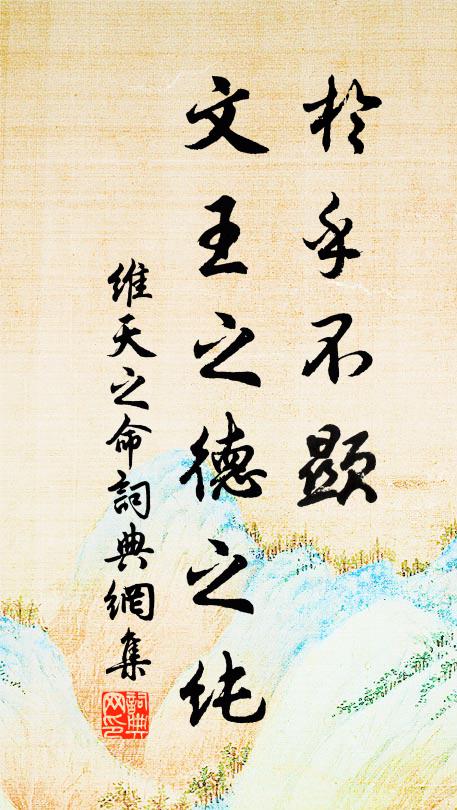 於乎不顯
文王之德之纯
維天之命詞典網集
詞典
网印